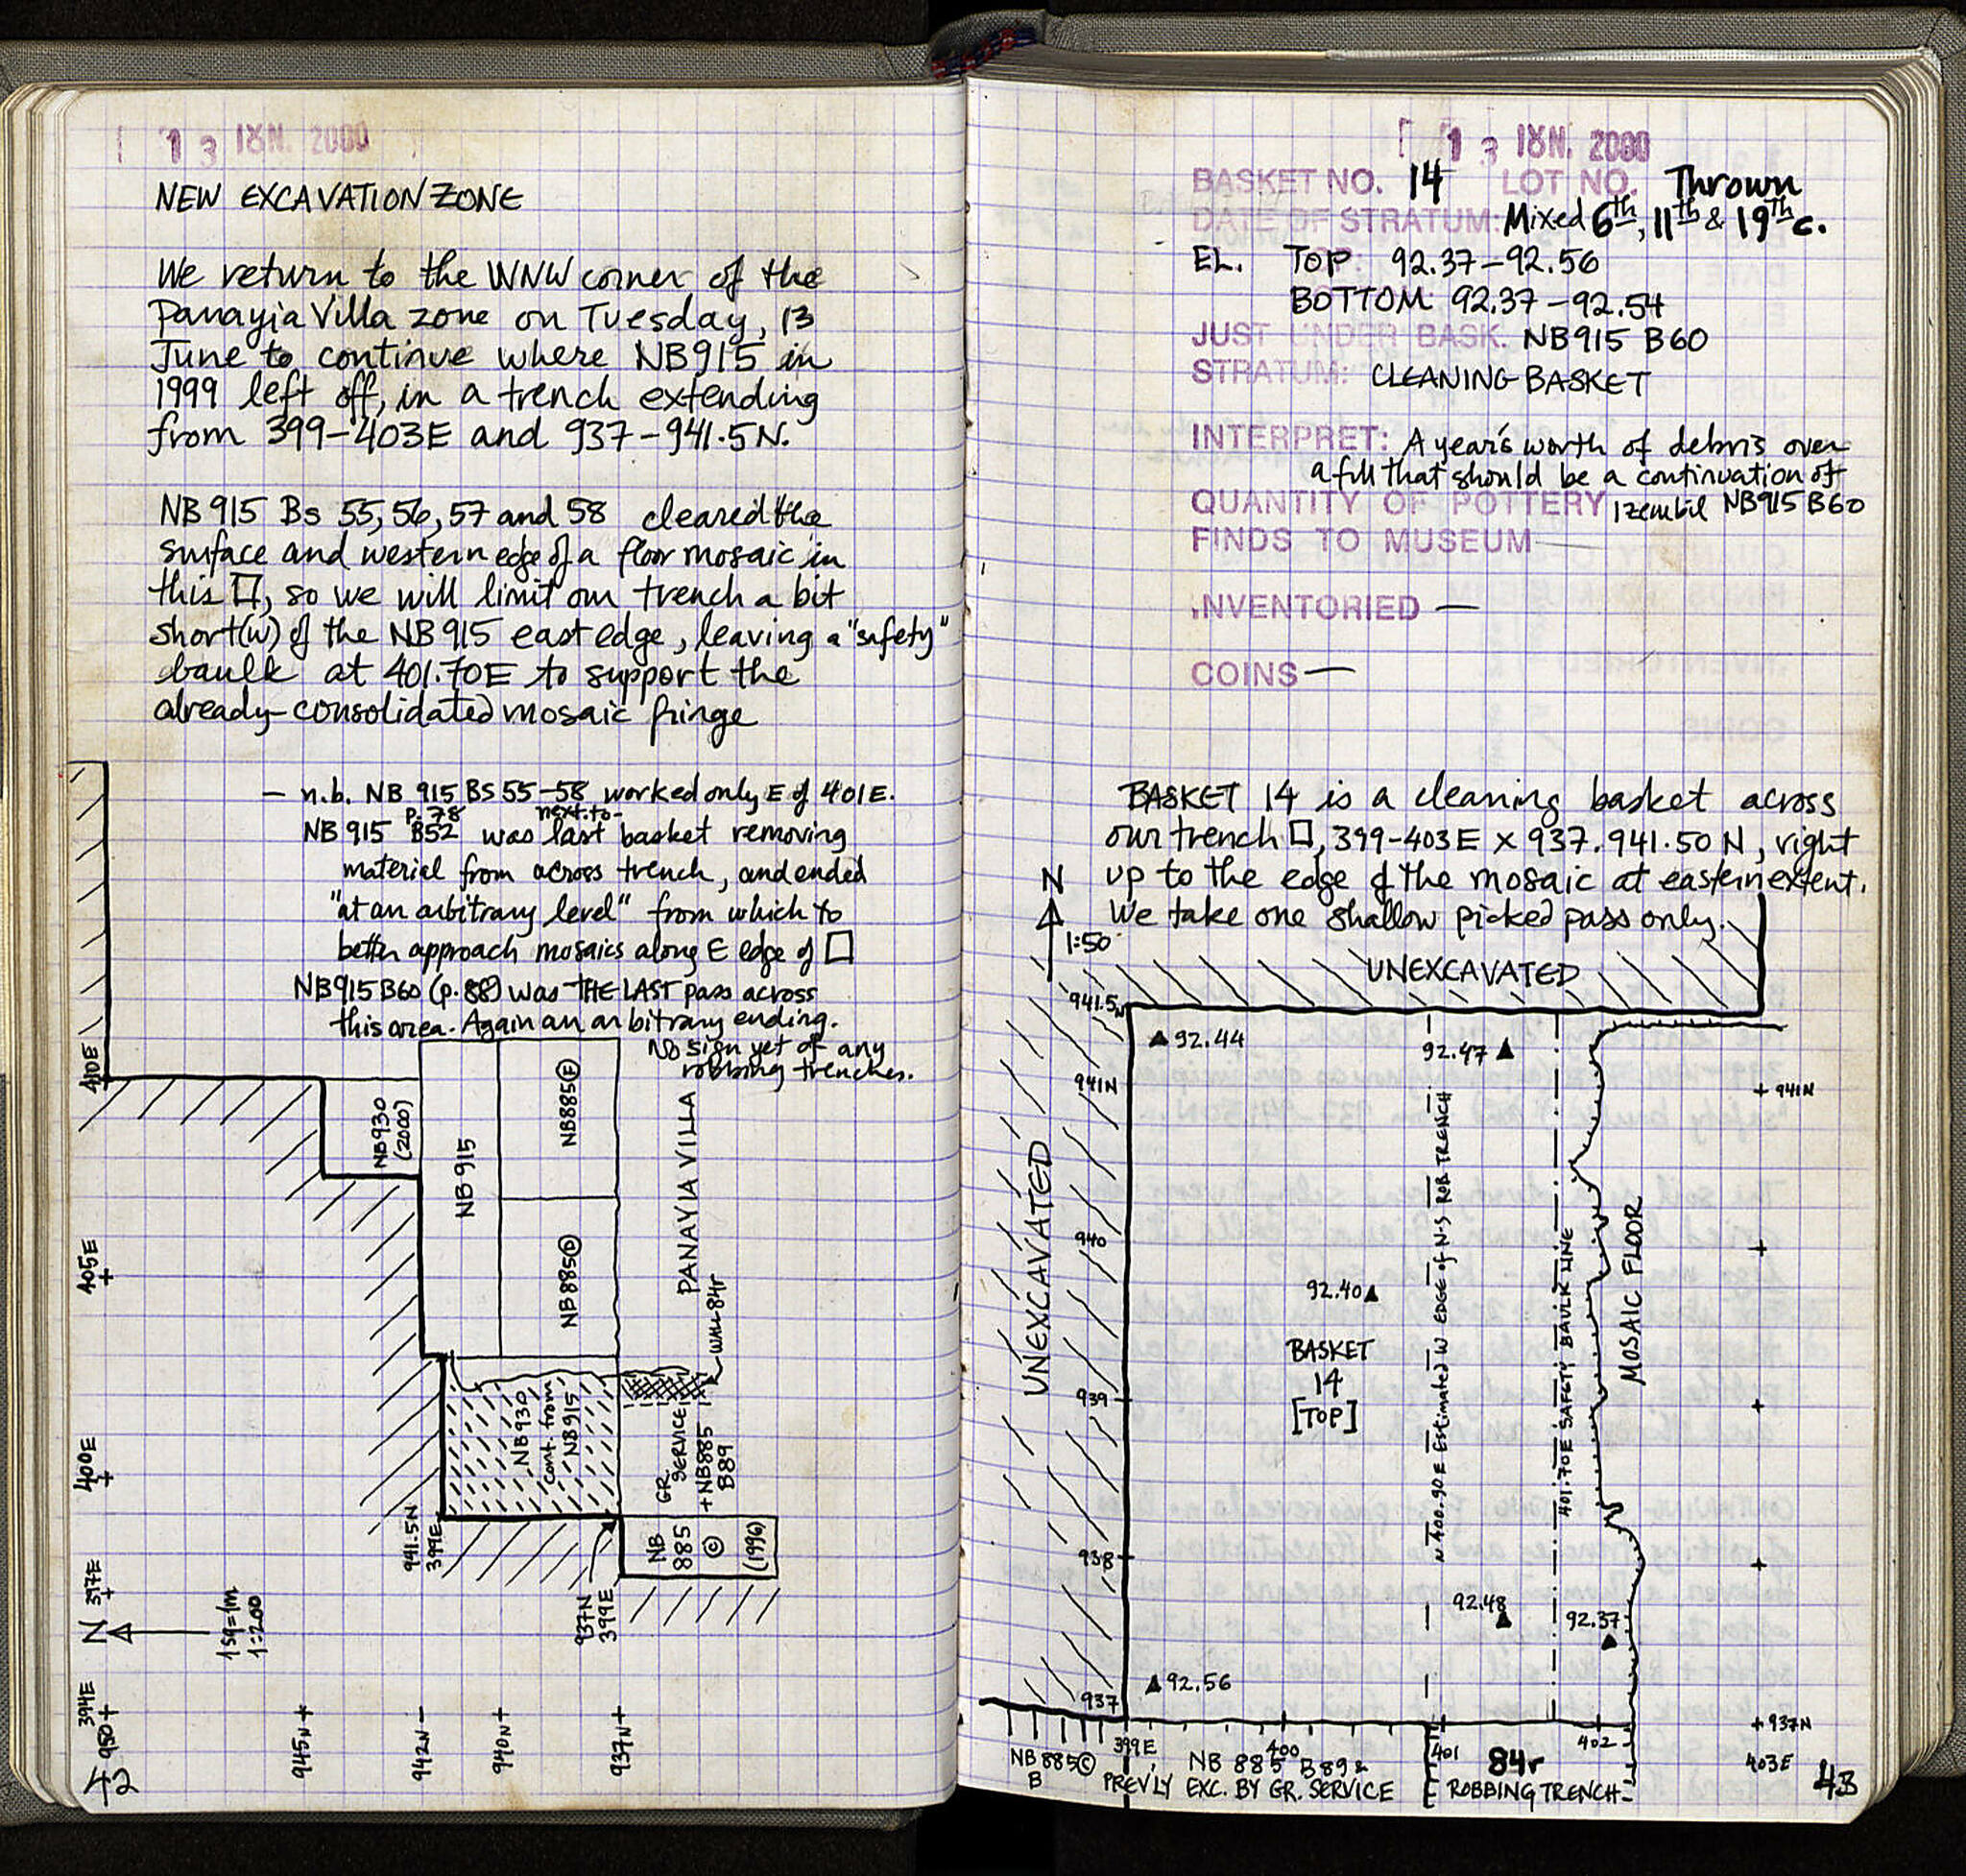 13 ΙΟΥΝ. 2000
NEW EXCAVATION ZONE
We return to the WNW corner of the
Panayia Villa zone on Tuesday, 13
June to continue where NB915 in
1999 left off, in a trench extending
from 399-403E and 937-941.5N.
NB 915 Bs 55, 56, 57 and 58 cleared the
surface and western edge of a floor mosaic in
this □, so we will limit our trench a bit
short (W) of the NB 915 east edge, leaving a "safety"
baulk at 401.70E to support the
already-consolidated mosaic fringe
- n.b. NB 915 BS 55-58 worked only E of 401E.
p. 78 next-to-
NB 915 B52 was last basket removing
material from across trench, and ended
"at an arbitrary level" from which to
better approach mosaics along E edge of □
NB915 B60 (p. 88) was THE LAST pass across
this area. Again an arbitrary ending.
No sign yet of any
robbing trenches.
410E
NB930
(2000)
NB 915
NB885 Ⓔ
PANAYIA VILLA
405E
NB885 Ⓓ
WALL 84r
NB930
cont. from
NB915
GR.
SERVICE
+ NB885
B89
400E
941.5N
399E
NB
885
Ⓒ
(1996)
397E
937N
399E
N
1sq=1m
1:200
394E
950
945N
942N
940N
937N
42
13 ΙΟΥΝ. 2000
BASKET NO. 14 LOT NO. Thrown
DATE OF STRATUM: Mixed 6th, 11th & 19th c.
EL. TOP: 92.37-92.56
BOTTOM: 92.37-92.54
JUST UNDER BASK. NB915 B60
STRATUM: CLEANING BASKET
INTERPRET: A year's worth of debris over
a fill that should be a continuation of
QUANTITY OF POTTERY 1 zembil NB915 B60
FINDS TO MUSEUM
INVENTORIED —
COINS —
BASKET 14 is a cleaning basket across
our trench □, 399-403E x 937.941.50 N, right
up to the edge of the mosaic at eastern extent.
We take one shallow picked pass only.
N
1:50
UNEXCAVATED
941.5N
92.44
92.47
941N
941N
UNEXCAVATED
N400.90 E Estimated W EDGE of N-S ROB TRENCH
401.70E SAFETY BAULK LINE
MOSAIC FLOOR
940
92.40
BASKET
14
[TOP]
939
938
92.48
92.37
92.56
937
937N
399E
400
401
402
403E
NB 885 Ⓒ
B
NB 885 B89 &
PREV'LY EXC. BY GR. SERVICE
84r
ROBBING TRENCH
43